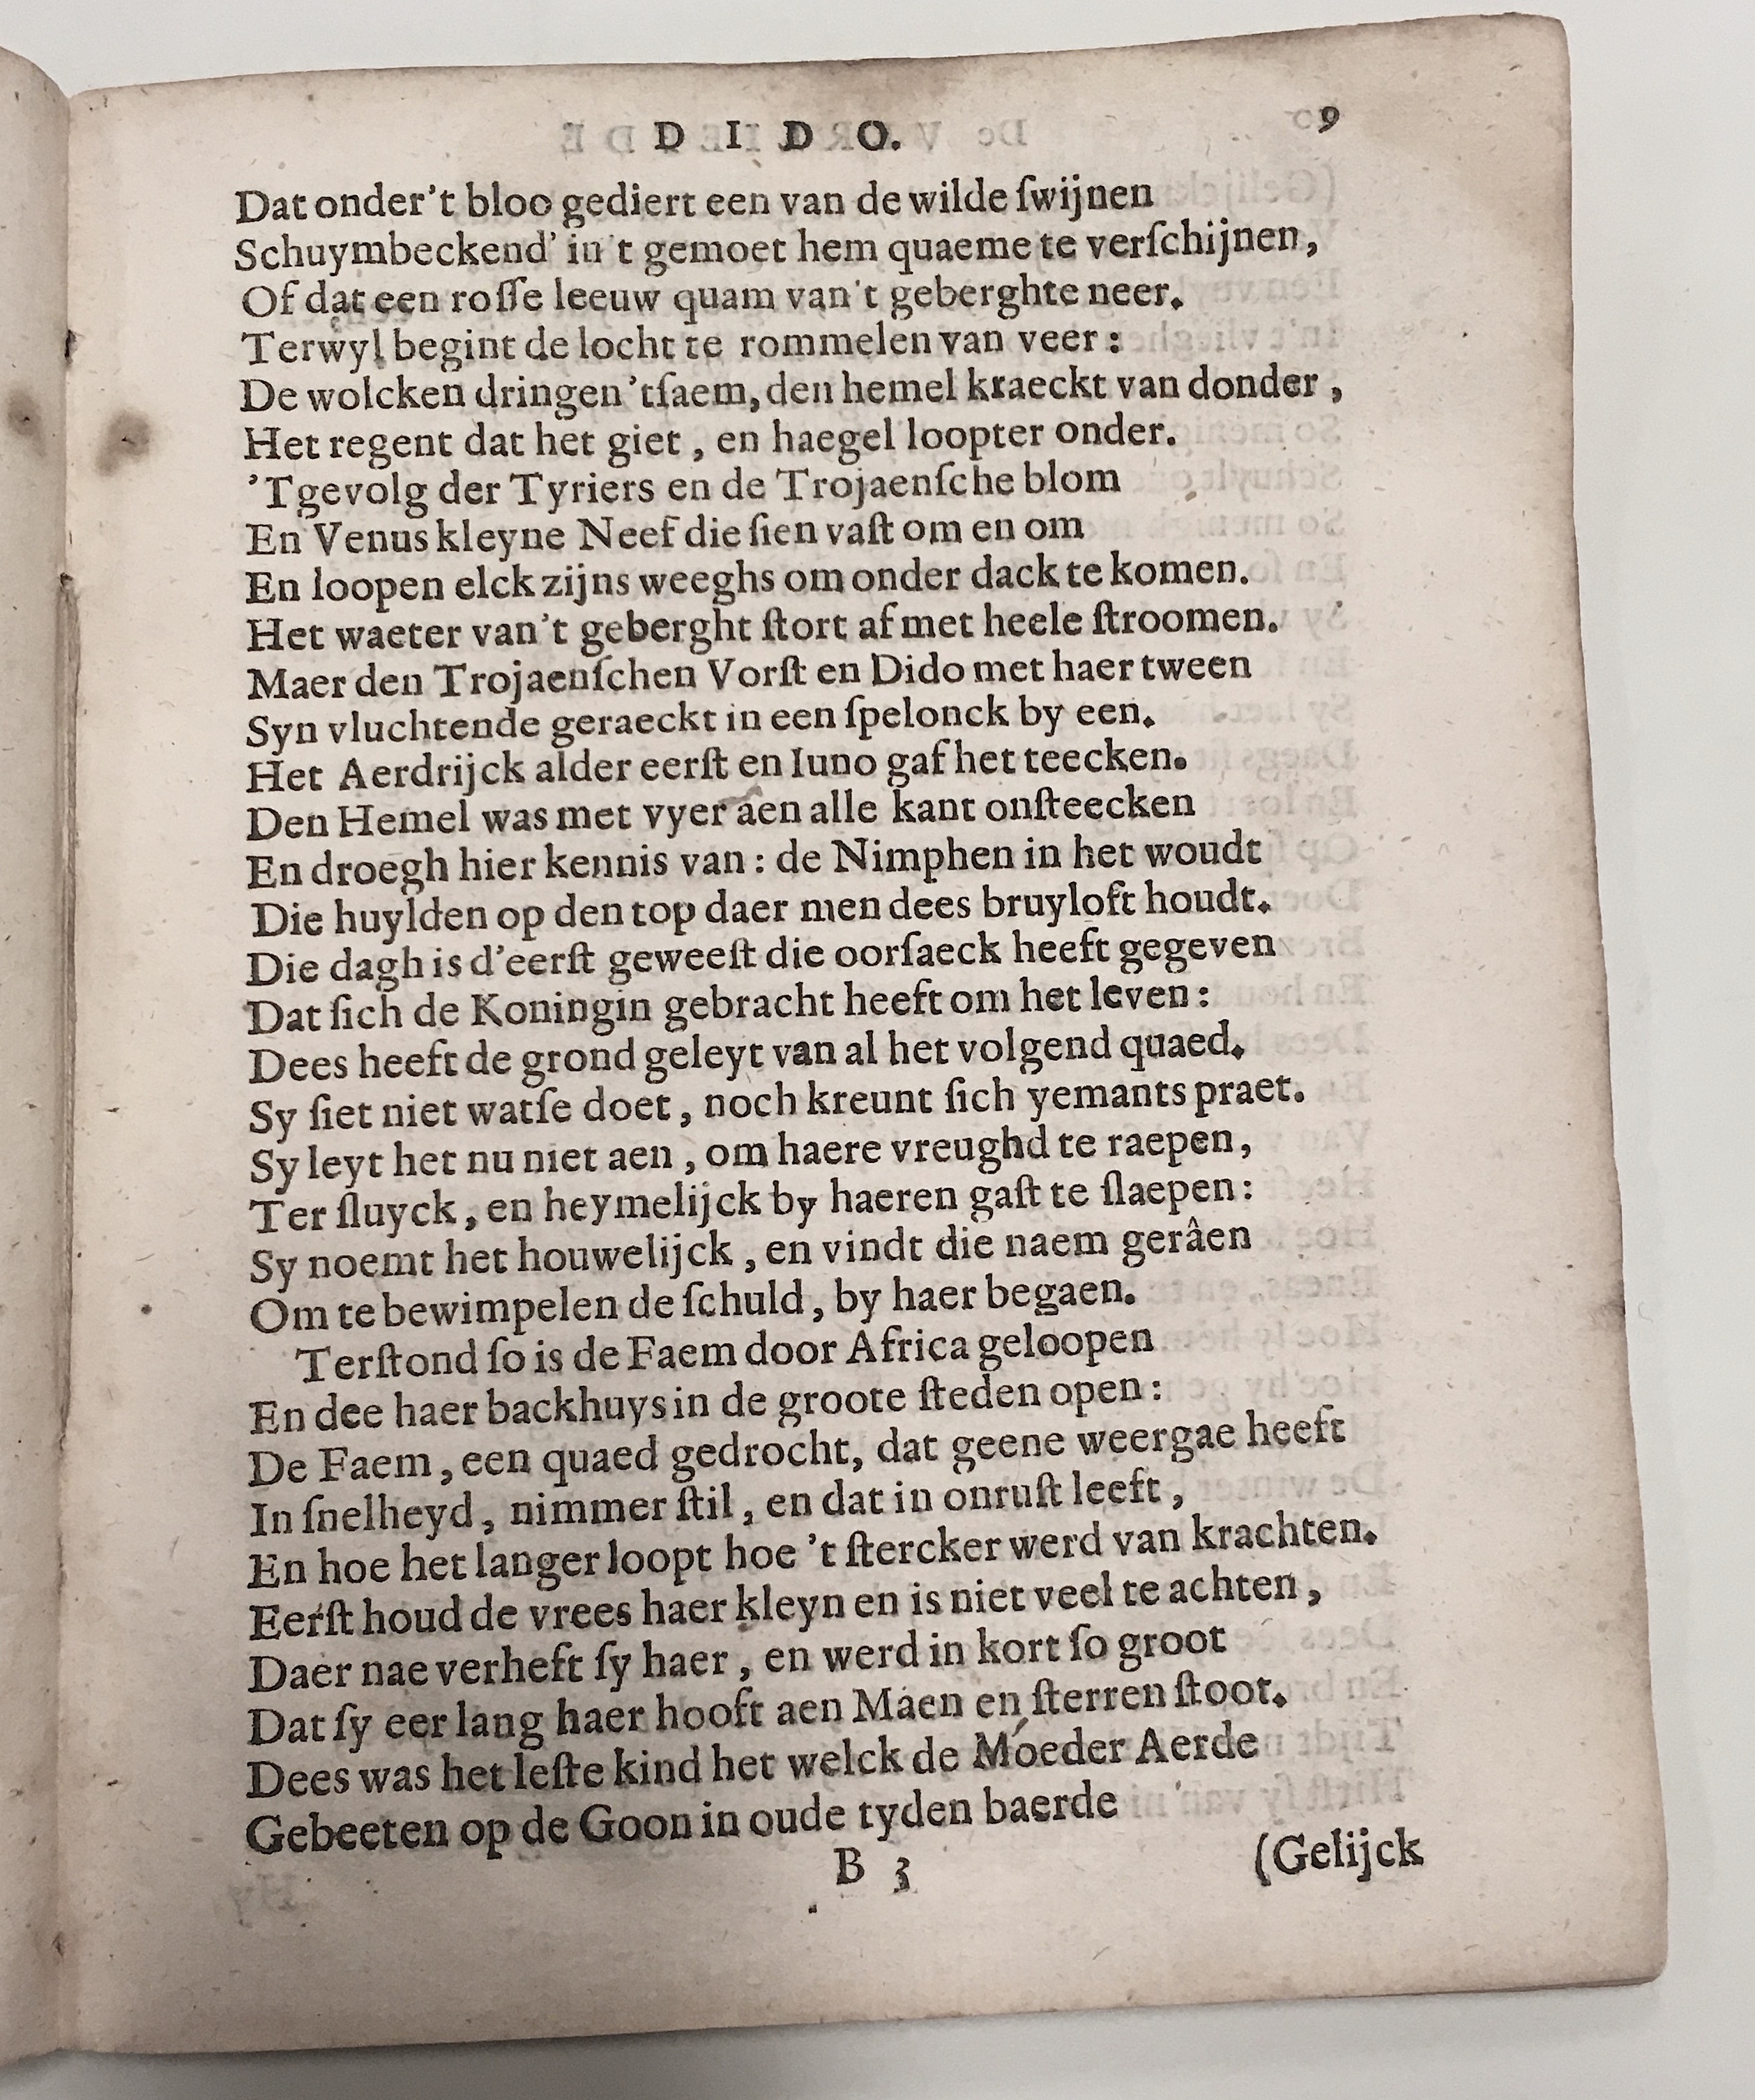 DIDO. 9
Dat onder't bloo gediert een van de wilde ſwijnen
Schuymbeckend' in't gemoet hem quaeme te verſchijnen,
Of dat een roſſe leeuw quam van't geberghte neer.
Terwyl begint de locht te rommelen van veer:
De wolcken dringen 'tſaem, den hemel kraeckt van donder,
Het regent dat het giet, en haegel loopter onder.
'Tgevolg der Tyriers en de Trojaenſche blom
En Venus kleyne Neef die ſien vaſt om en om
En loopen elck zijns weeghs om onder dack te komen.
Het waeter van't geberght ſtort af met heele ſtroomen.
Maer den Trojaenſchen Vorſt en Dido met haer tween
Syn vluchtende geraeckt in een ſpelonck by een.
Het Aerdrijck alder eerſt en Iuno gaf het teecken.
Den Hemel was met vyer aen alle kant onſteecken
En droegh hier kennis van: de Nimphen in het woudt
Die huylden op den top daer men dees bruyloft houdt.
Die dagh is d'eerſt geweeſt die oorſaeck heeft gegeven
Dat ſich de Koningin gebracht heeft om het leven:
Dees heeft de grond geleyt van al het volgend quaed.
Sy ſiet niet watſe doet, noch kreunt ſich yemants praet.
Sy leyt het nu niet aen, om haere vreughd te raepen,
Ter ſluyck, en heymelijck by haeren gaſt te ſlaepen:
Sy noemt het houwelijck, en vindt die naem gerâen
Om te bewimpelen de ſchuld, by haer begaen.
Terſtond ſo is de Faem door Africa geloopen
En dee haer backhuys in de groote ſteden open:
De Faem, een quaed gedrocht, dat geene weergae heeft
In ſnelheyd, nimmer ſtil, en dat in onruſt leeft,
En hoe het langer loopt hoe 't ſtercker werd van krachten.
Eerſt houd de vrees haer kleyn en is niet veel te achten,
Daer nae verheft ſy haer, en werd in kort ſo groot
Dat ſy eer lang haer hooft aen Maen en ſterren ſtoot.
Dees was het leſte kind het welck de Moeder Aerde
Gebeeten op de Goon in oude tyden baerde
B 3 (Gelijck